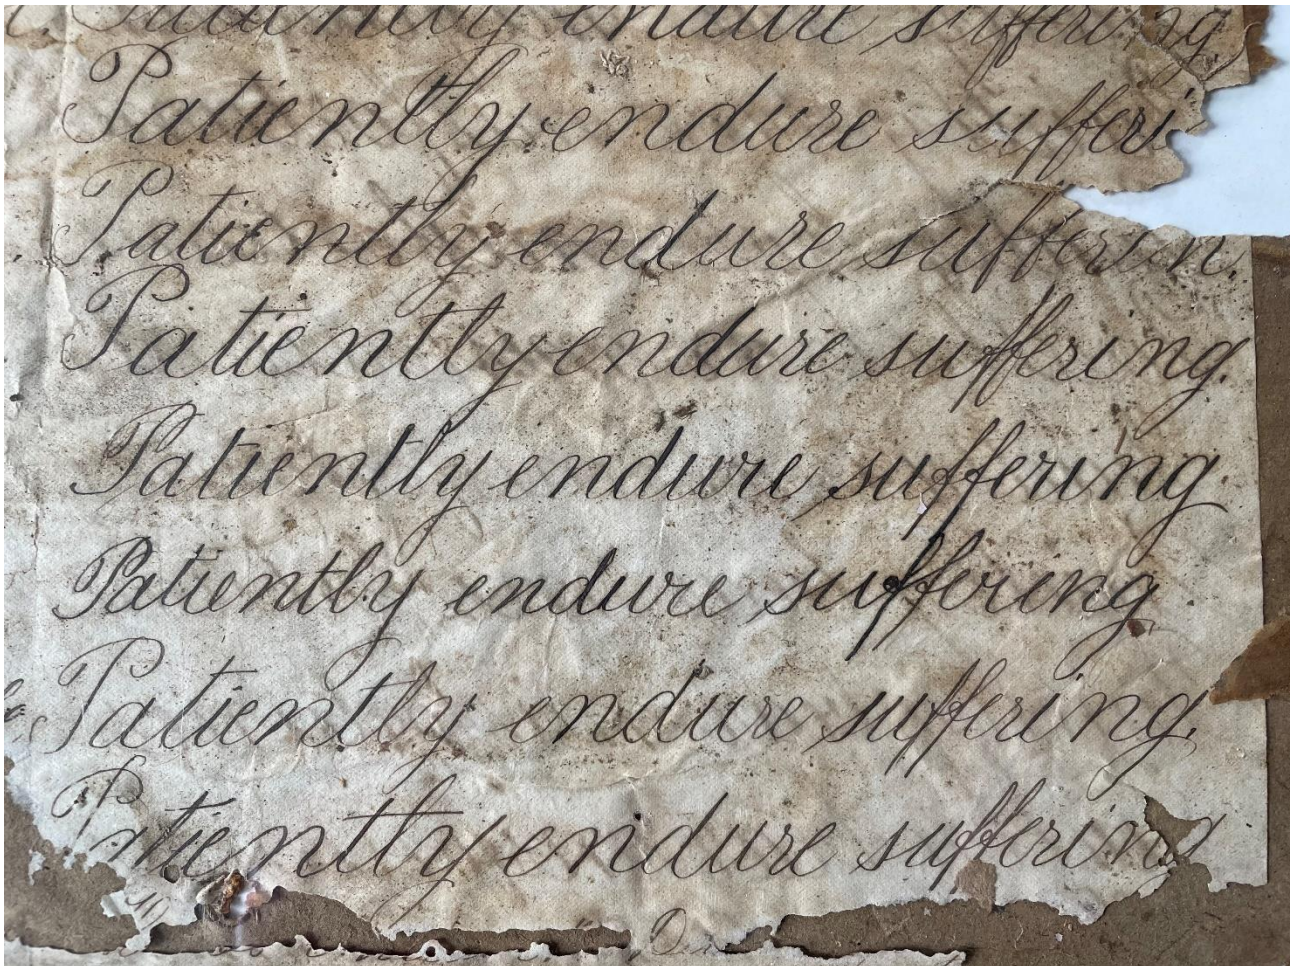 Patiently endure suffering
Patiently endure sufferi
Patiently endure sufferin.
Patiently endure suffering.
Patiently endure suffering
Patiently endure suffering
Patiently endure suffering.
Patiently endure suffering